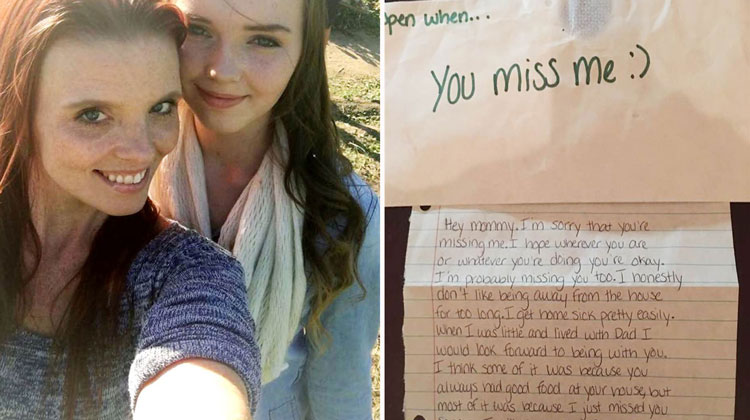 open when...
You miss me :)
Hey mommy. I'm sorry that you're
missing me. I hope wherever you are
or whatever you're doing you're okay.
I'm probably missing you too. I honestly
don't like being away from the house
for too long. I get home sick pretty easily.
When I was little and lived with Dad I
would look forward to being with you.
I think some of it was because you
always had good food at your house, but
most of it was because I just missed you